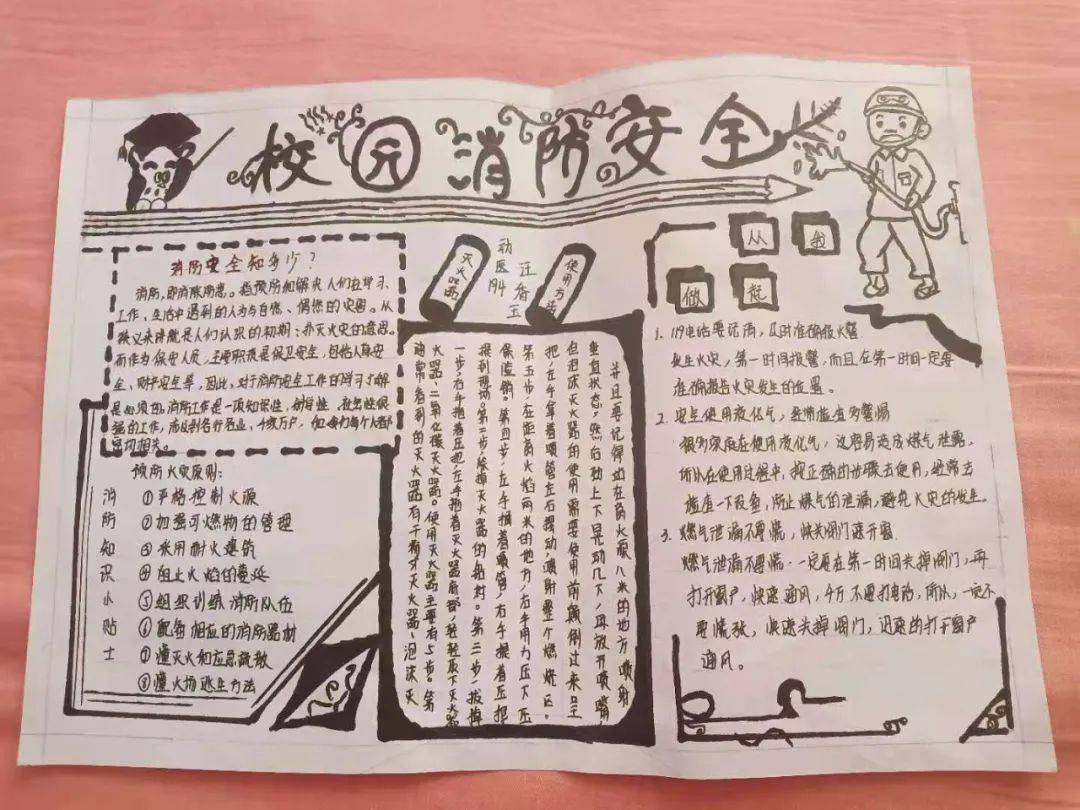 校园消防安全
消防安全知多少?
消防,即消除防患。指预防和解决人们在学习、
工作、生活中遇到的人为与自然、偶然的灾害。从
狭义来讲就是人们认识的初期:扑灭火灾的意思。
而作为保安人员,主要职责是保卫安全,包括人身安
全、财产安全等,因此,对于消防安全工作的学习了解
是必须的。消防工作是一项知识性、科学性、社会性很
强的工作,涉及到各行各业、千家万户,和我们每个人都
密切相关。
消防知识小贴士
预防火灾原则:
①严格控制火源
②加强可燃物的管理
③采用耐火建筑
④阻止火焰的蔓延
⑤组织训练消防队伍
⑥配备相应的消防器材
⑦懂灭火和应急疏散
⑧懂火场逃生方法
灭火器
动医194
汪香玉
使用方法
通常看到的灭火器有干粉灭火器、泡沫灭
火器、二氧化碳灭火器。使用灭火器主要有5步。第
一步,右手拖着压把,左手拖着灭火器底部,轻轻取下灭火器
提到现场。第二步,除掉灭火器的铅封。第三步,拔掉
保险销。第四步,左手握着喷管,右手握着压把
第五步,在距离火焰两米的地方,右手用力压下压
把,左手拿着喷管左右摆动,喷射整个燃烧区。
但泡沫灭火器的使用需要使用前颠倒过来呈
垂直状态,然后在上下晃动几下,再放开喷嘴
并且要记得站在离火源八米的地方喷射
从我
做起
1. 119电话要记清,及时准确报火警
发生火灾,第一时间报警,而且在第一时间一定要
准确报告火灾发生的位置。
2. 安全使用液化气,经常检查勿警惕
很多家庭在使用液化气,这容易造成煤气泄露,
所以在使用过程中,按正确的步骤去使用,经常去
检查一下设备,防止煤气的泄漏,避免火灾的发生。
3. 燃气泄漏不要慌,快关阀门速开窗
燃气泄漏不要慌.一定要在第一时间关掉阀门,再
打开窗户,快速通风,千万不要打电话,所以,一定不
要慌张,快速关掉阀门,迅速的打开窗户
通风。